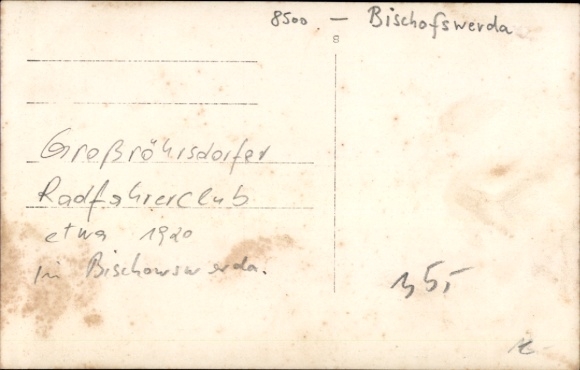 8500 – Bischofswerda
8
Großröhrsdorfer
Radfahrerclub
etwa 1920
in Bischowswerda.